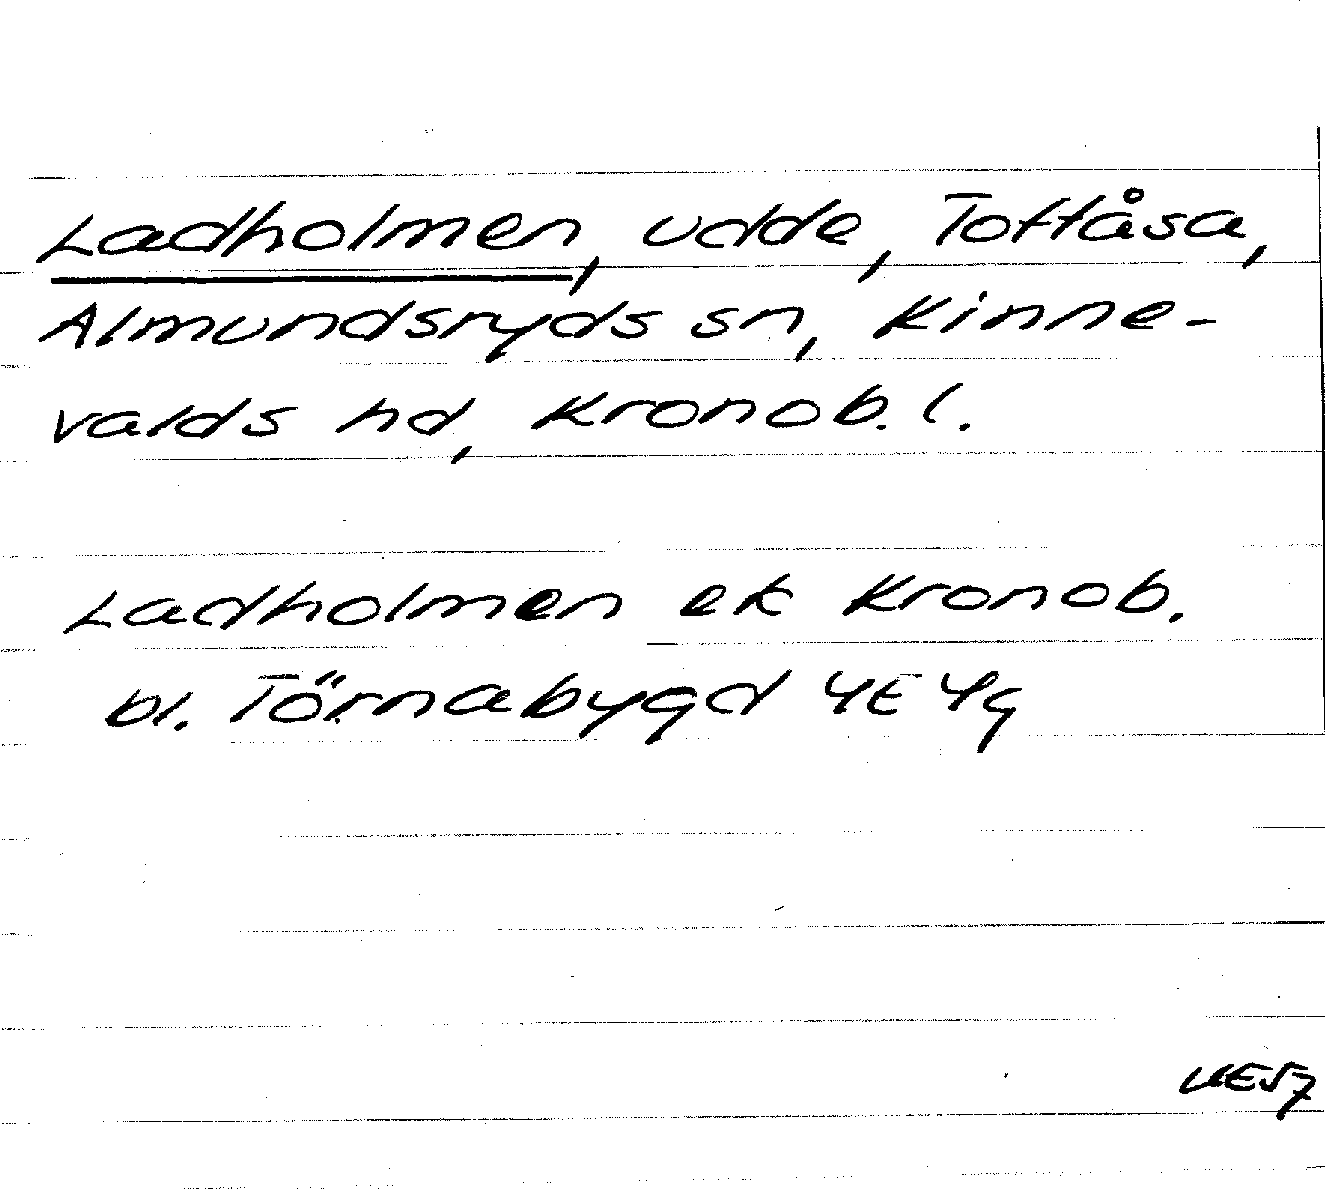 Ladholmen, udde, Toftåsa,
Almundsryds sn, Kinne-
valds hd, Kronob. l.
Ladholmen ek Kronob.
bl. Törnabygd 4E 4g